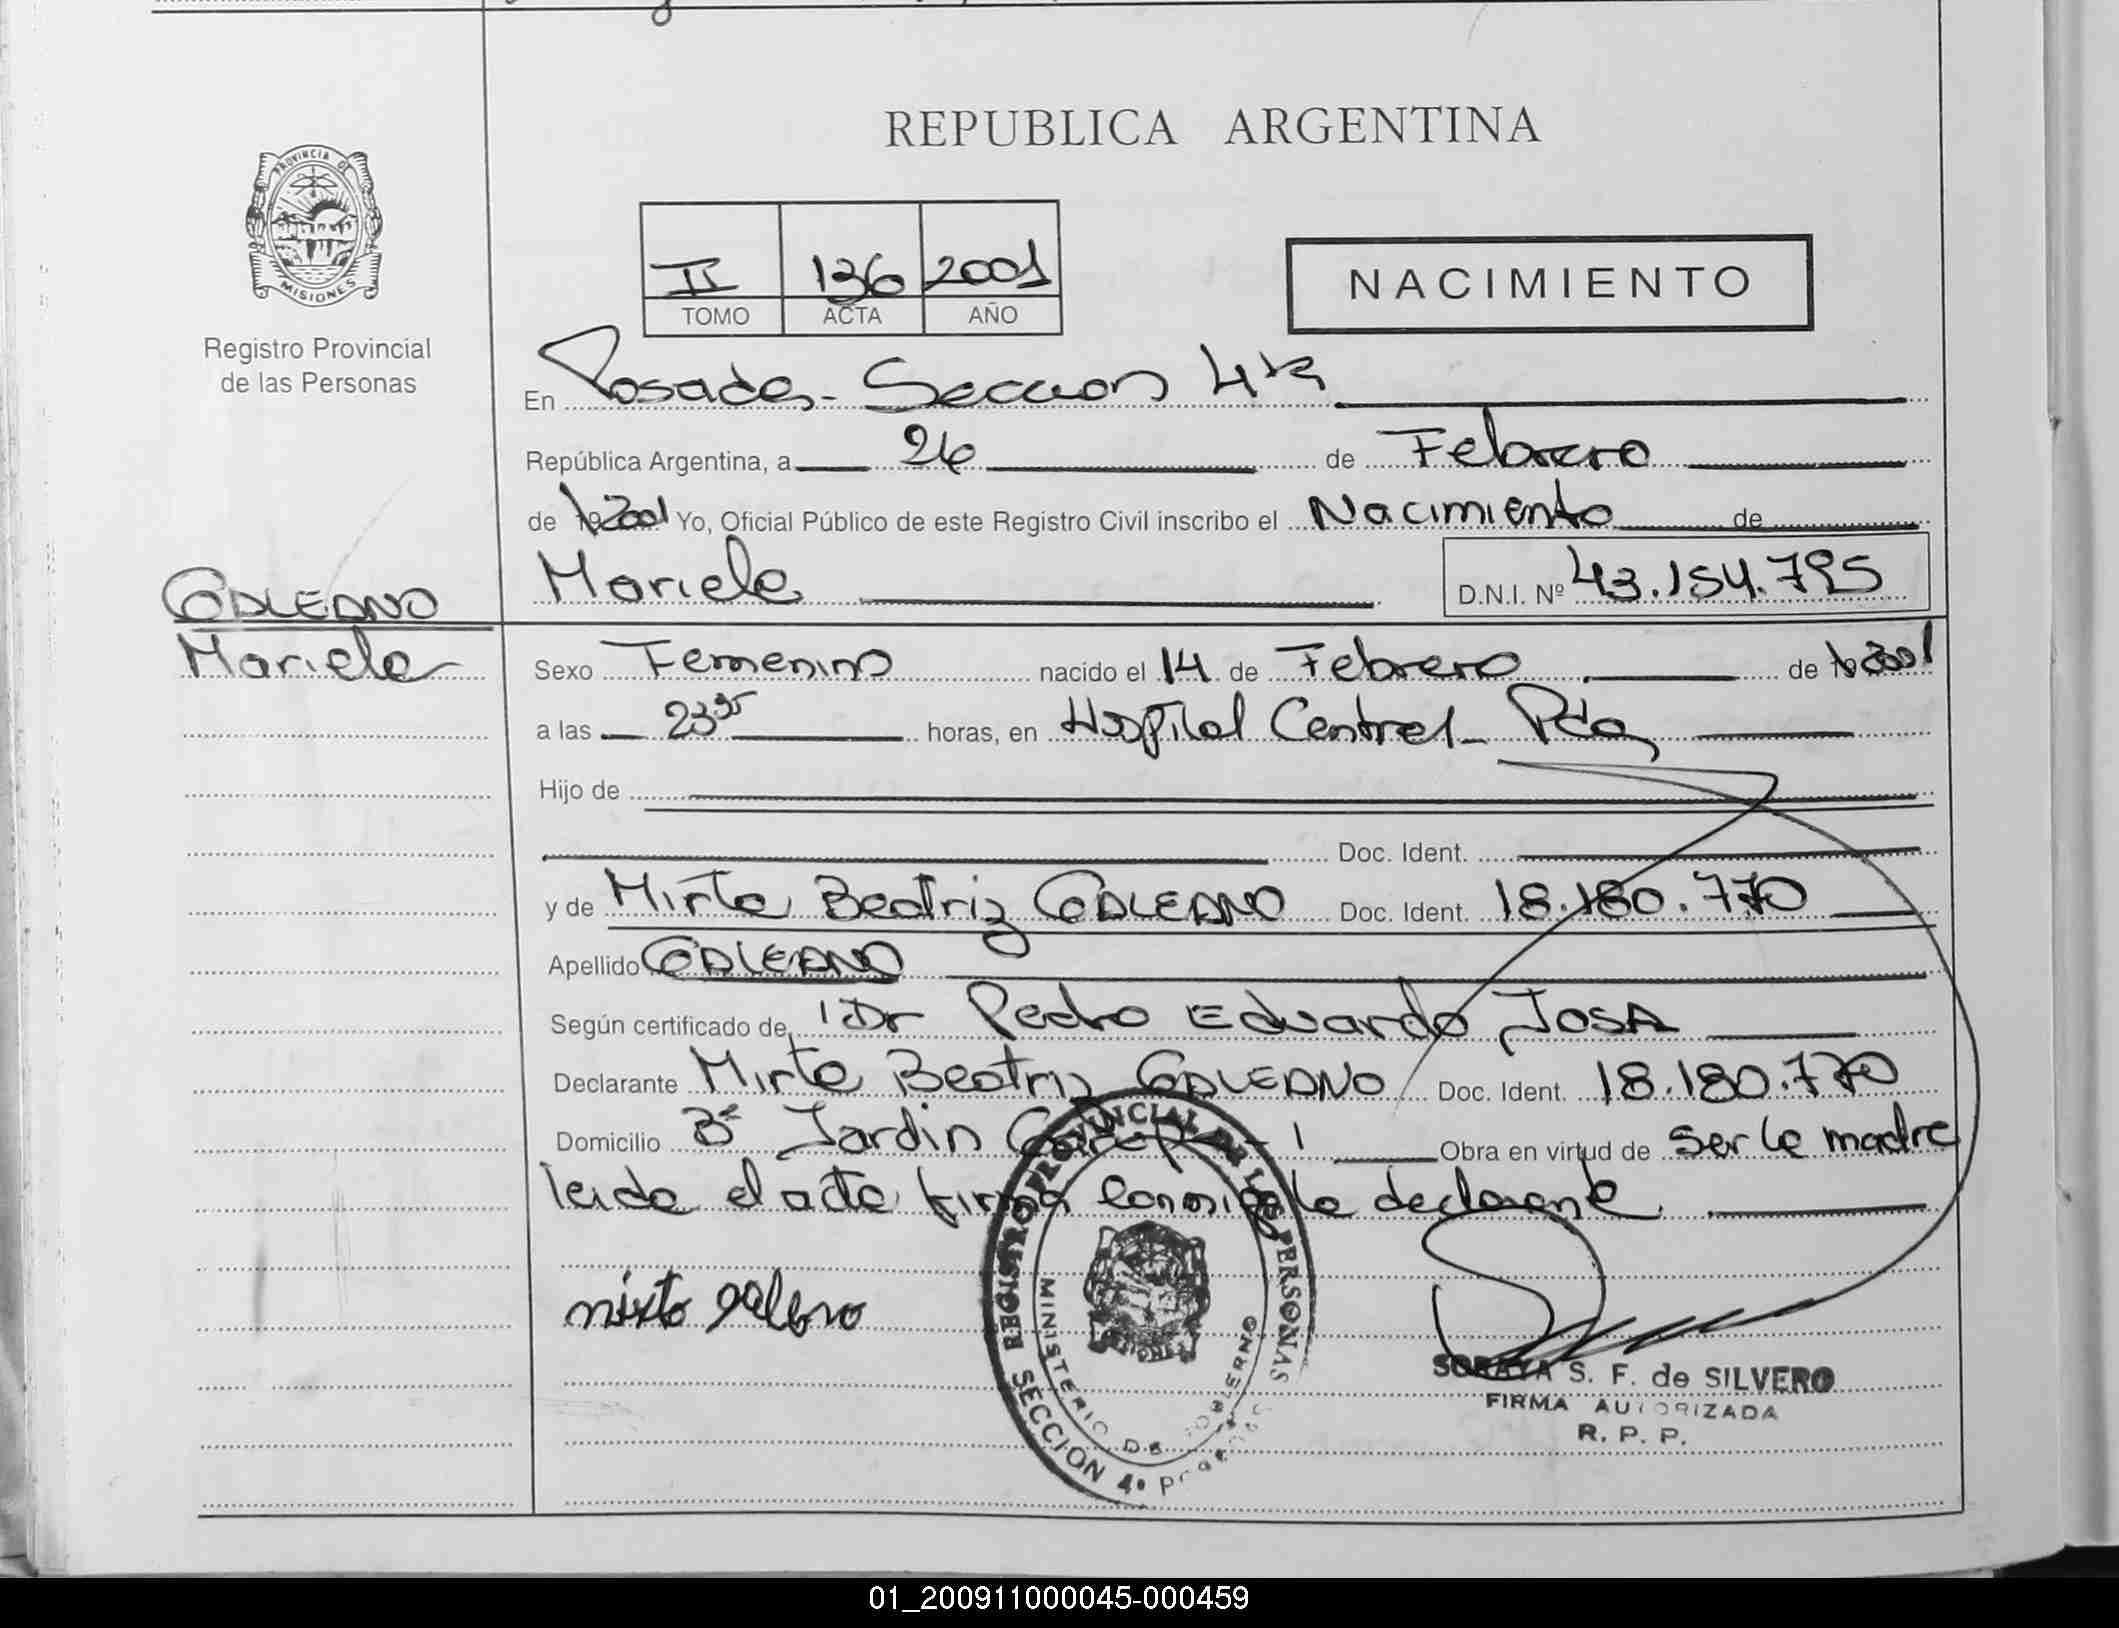 REPUBLICA ARGENTINA
PROVINCIA DE
MISIONES
Registro Provincial
de las Personas
II 136 2001
TOMO ACTA AÑO
NACIMIENTO
En Posadas - Seccion 4ta
República Argentina, a 26 de Febrero
de 2001 Yo, Oficial Público de este Registro Civil inscribo el Nacimiento de
Mariela D.N.I. Nº 43.154.795
GALEANO
Mariela
Sexo Femenino nacido el 14 de Febrero de 2001
a las 23 35 horas, en Hospital Central - Pdas
Hijo de
Doc. Ident.
y de Mirta Beatriz GALEANO Doc. Ident. 18.180.770
Apellido GALEANO
Según certificado de Dr Pedro Eduardo JOSA
Declarante Mirta Beatriz GALEANO Doc. Ident. 18.180.770
Domicilio Bº Jardin 1 Obra en virtud de ser la madre
leida el acta firma conmigo la declarante
mirta galeano
REGISTRO PROVINCIAL DE LAS PERSONAS
MINISTERIO DE GOBIERNO
SECCION 4ª
SORAYA S. F. de SILVERO
FIRMA AUTORIZADA
R. P. P.
01_200911000045-000459